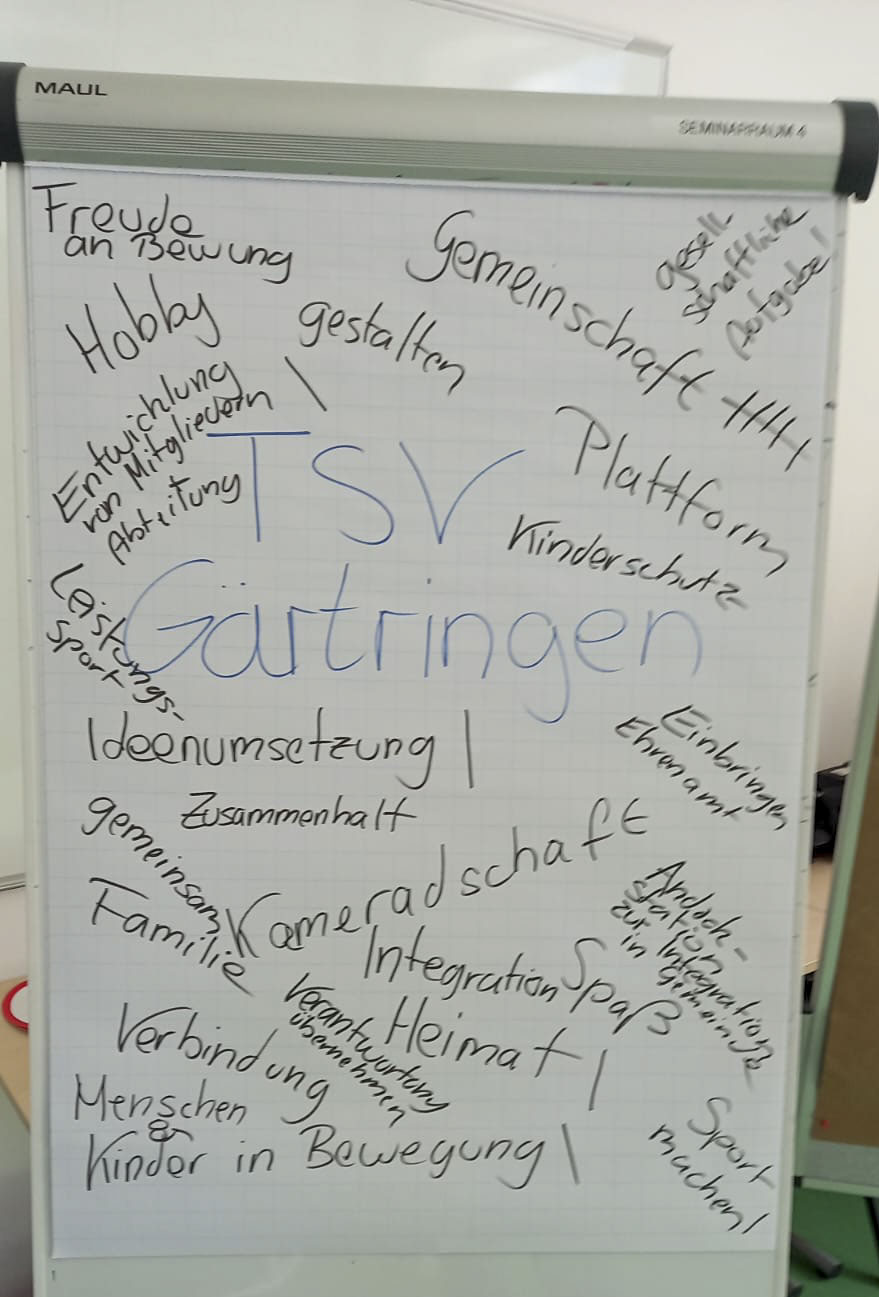 MAUL
SEMINARRAUM 4
Freude
an Bewung
Gemeinschaft ||||
gesell
schaftliche
Aufgabe!
Hobby
gestalten |
Entwicklung
von Mitgliedern
Abteilung
TSV
Gärtringen
Plattform
Kinderschutz
Leistungs-
sport
Ideenumsetzung |
Einbringen
Ehrenamt
Zusammenhalt
gemeinsam
Kameradschaft
Familie
Integration
Spaß
Andock-
station
zur Integration
in Gemeinde
Verantwortung
übernehmen
Heimat |
Verbindung
Menschen
&
Kinder in Bewegung |
Sport
machen!